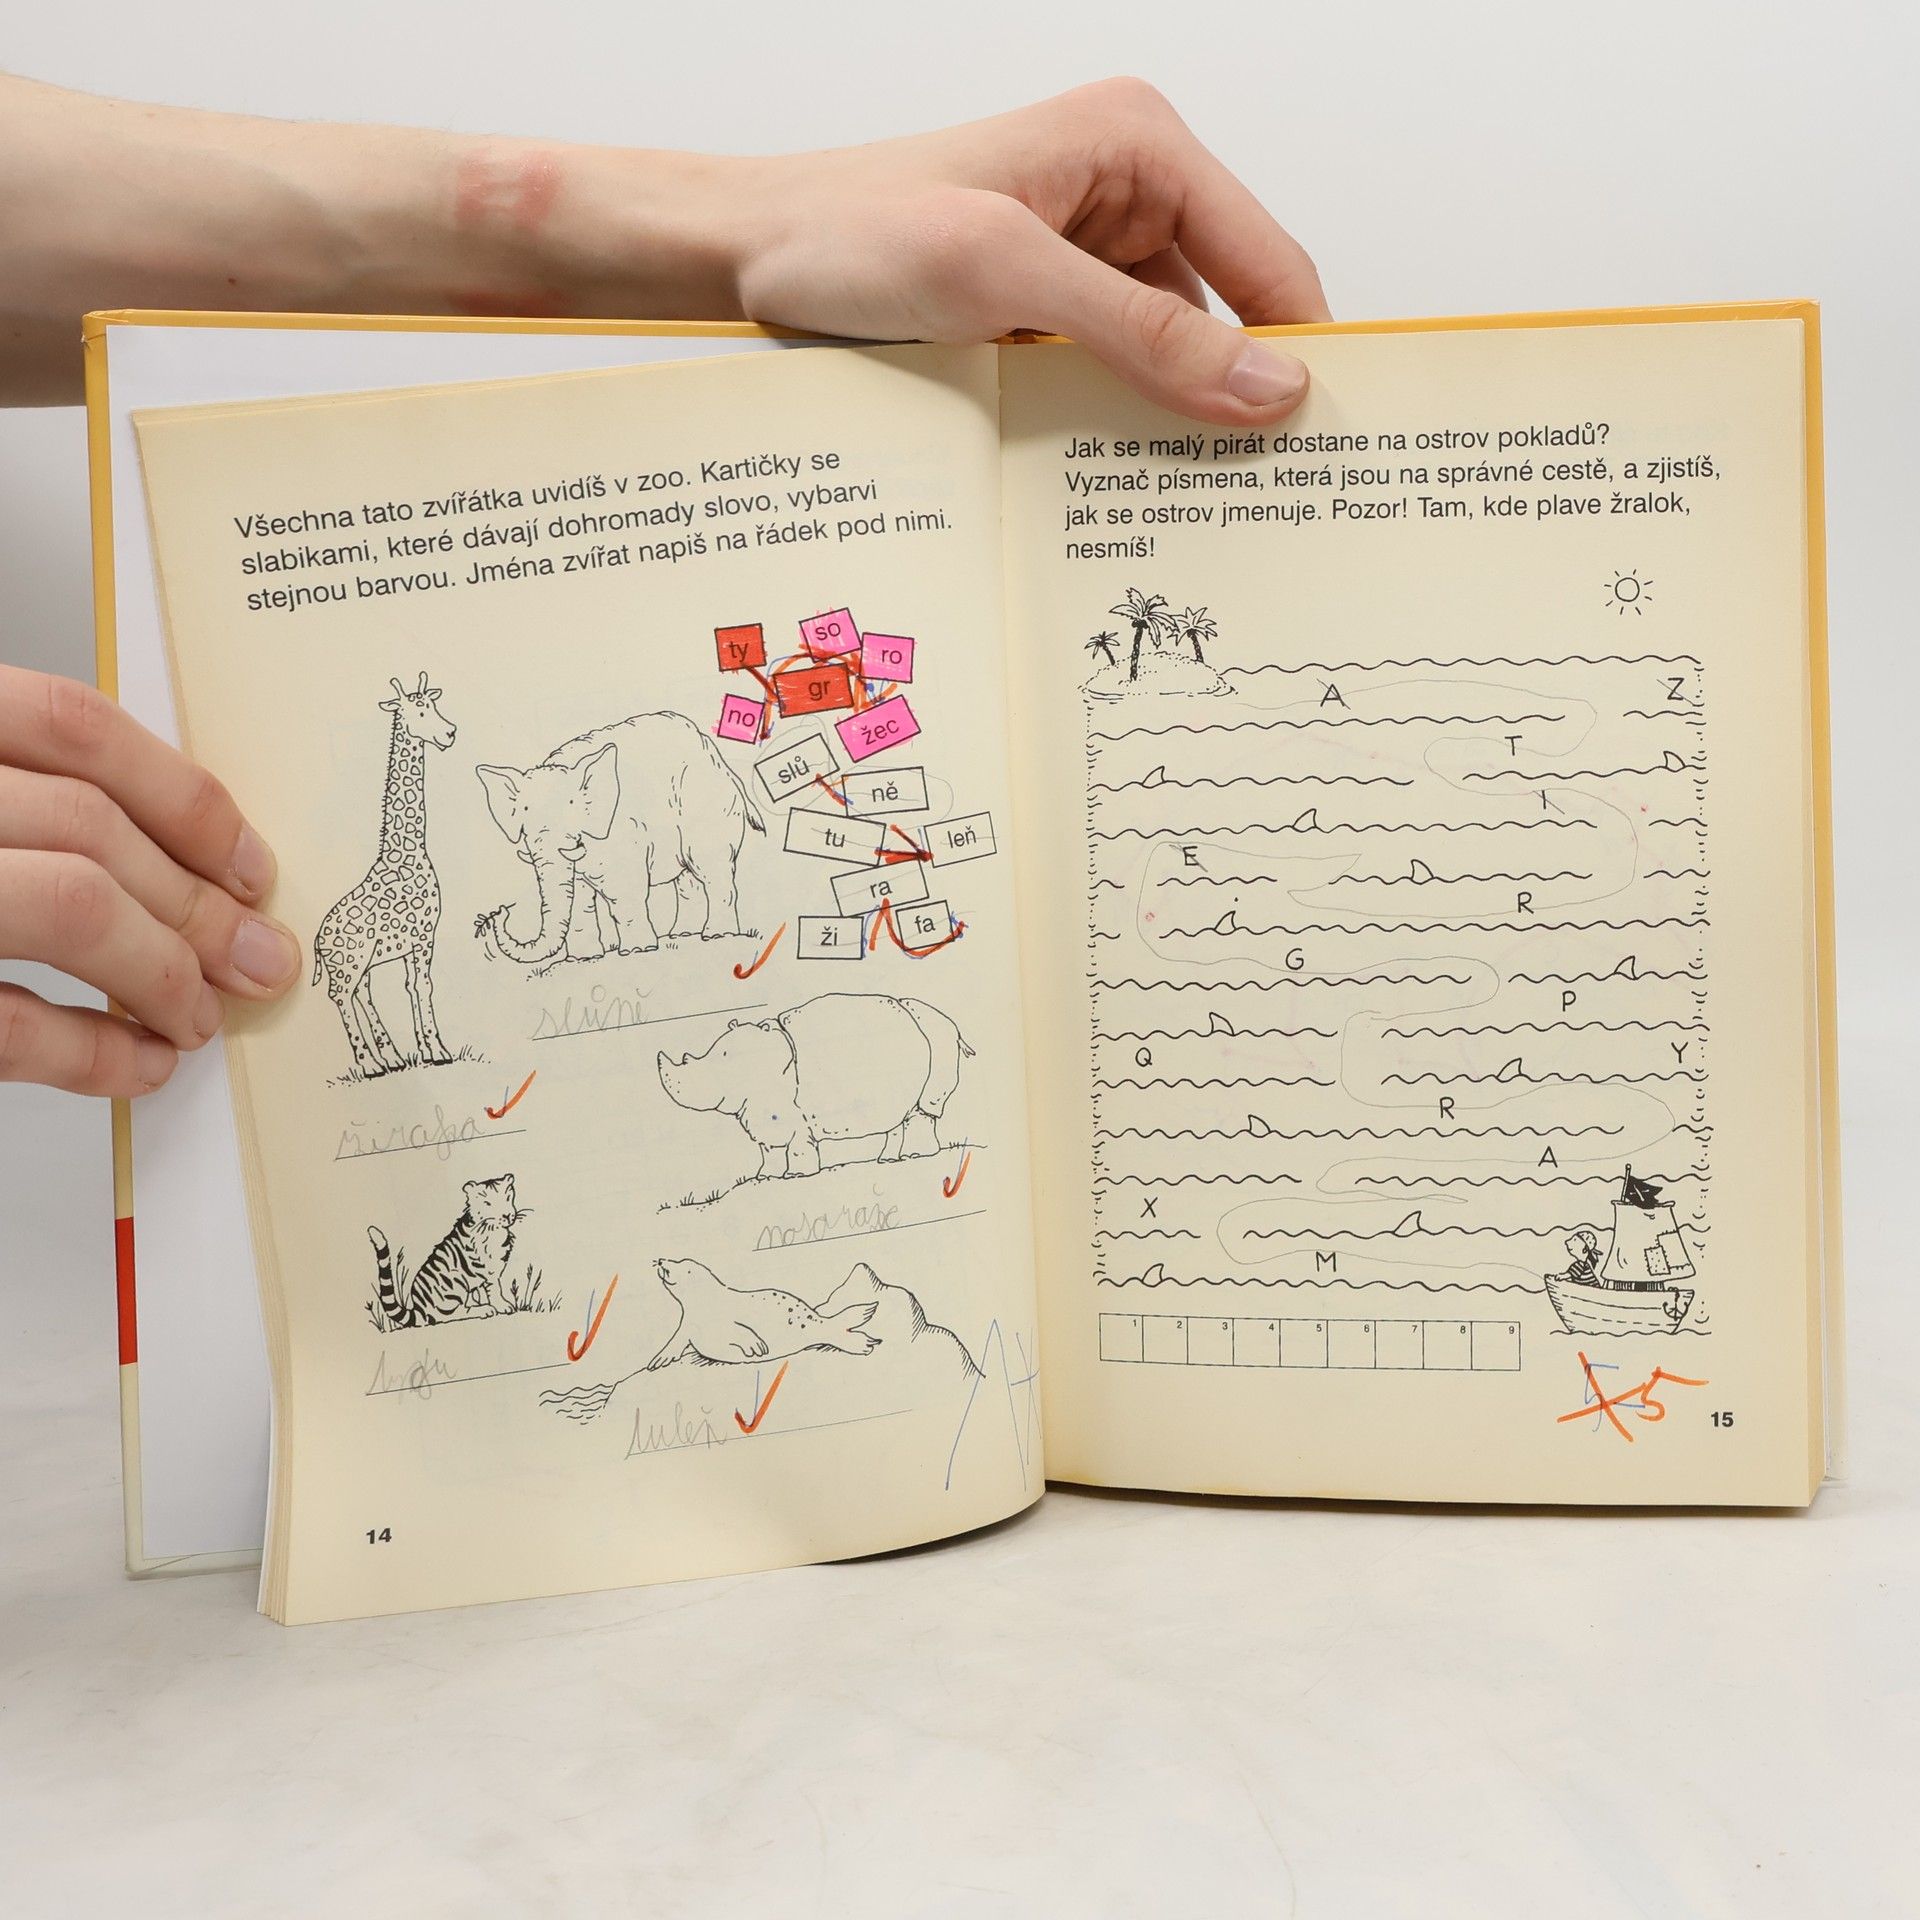 Všechna tato zvířátka uvidíš v zoo. Kartičky se
slabikami, které dávají dohromady slovo, vybarvi
stejnou barvou. Jména zvířat napiš na řádek pod nimi.
ty
so
ro
gr
no
žec
slů
ně
tu
leň
ra
ži
fa
slůně
žirafa
nosorožec
tygr
tuleň
14
Jak se malý pirát dostane na ostrov pokladů?
Vyznač písmena, která jsou na správné cestě, a zjistíš,
jak se ostrov jmenuje. Pozor! Tam, kde plave žralok,
nesmíš!
A Z
T
I
E
R
G
P
Q Y
R
A
X
M
1 2 3 4 5 6 7 8 9
5 5
15